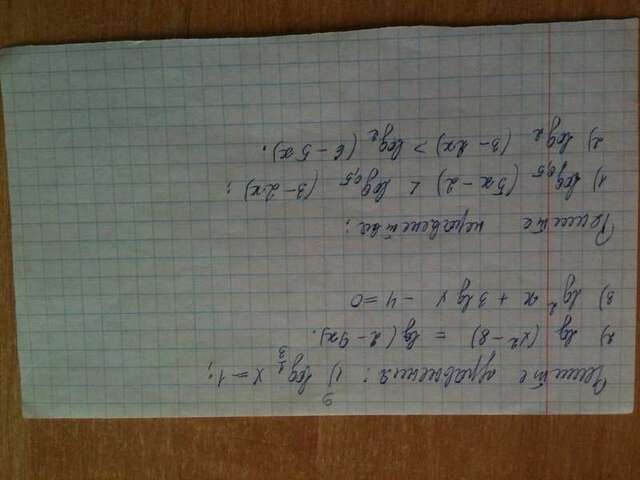 Решите уравнения: 1) log_{1/3} x = 1;
2) lg (x² - 8) = lg (2 - 9x).
3) lg² x + 3 lg x - 4 = 0
Решите неравенства:
1) log_{0,5} (5x - 2) < log_{0,5} (3 - 2x);
2) log₂ (3 - 2x) > log₂ (6 - 5x).